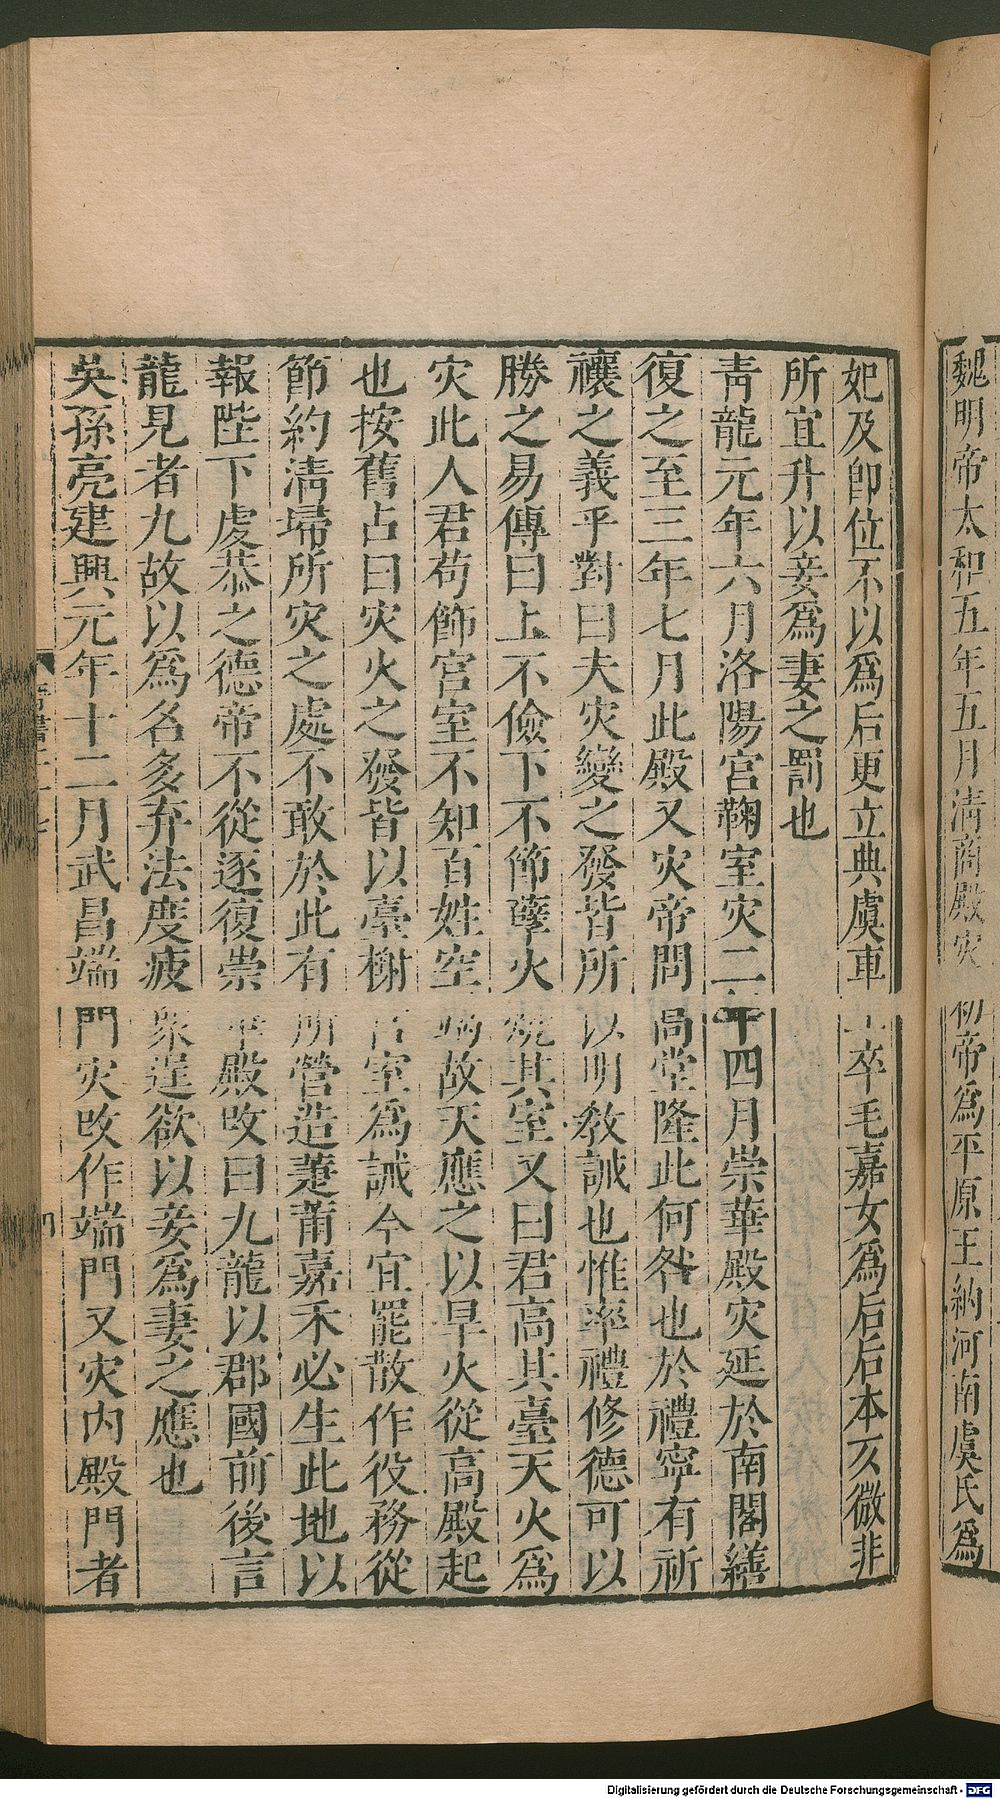 魏明帝太和五年五月清商殿灾初帝爲平原王納河南虞氏爲
妃及卽位不以爲后更立典虞車工卒毛嘉女爲后后本仄微非
所宜升以妾爲妻之罰也
青龍元年六月洛陽宮鞠室灾二年四月崇華殿灾延於南閣繕
復之至三年七月此殿又灾帝問高堂隆此何咎也於禮寧有祈
禳之義乎對曰夫灾變之發皆所以明敎誡也惟率禮修德可以
勝之易傳曰上不儉下不節孽火燒其室又曰君高其臺天火爲
灾此人君苟飾宮室不知百姓空竭故天應之以旱火從高殿起
也按舊占曰灾火之發皆以臺榭宮室爲誡今宜罷散作役務從
節約淸埽所灾之處不敢於此有所營造萐莆嘉禾必生此地以
報陛下虔恭之德帝不從遂復崇華殿改曰九龍以郡國前後言
龍見者九故以爲名多弃法度疲衆逞欲以妾爲妻之應也
吳孫亮建興元年十二月武昌端門灾改作端門又灾內殿門者
晉書二十七
Digitalisierung gefördert durch die Deutsche Forschungsgemeinschaft - DFG